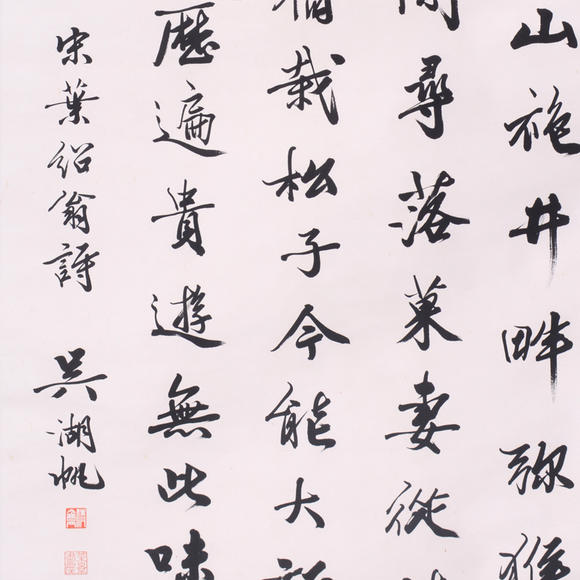 山施井畔猕猴
尋落菓妻從
栽松子今能大
歷遍貴遊無此味
宋葉紹翁詩
吳湖帆